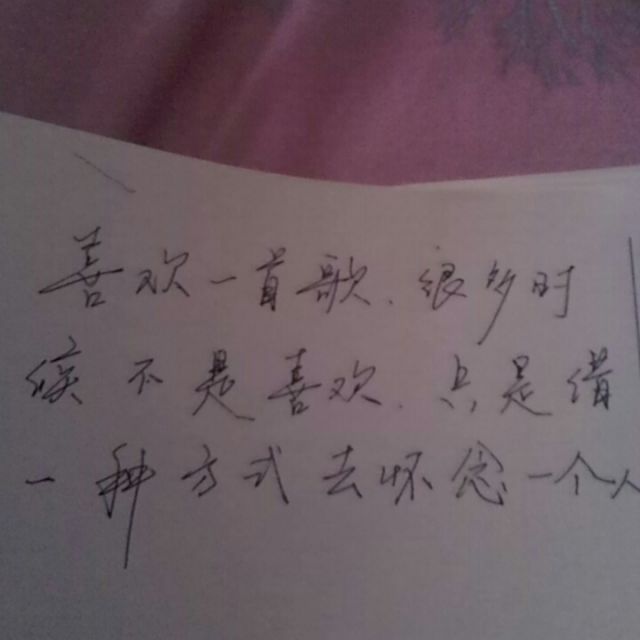 喜欢一首歌、很多时
候不是喜欢、只是借
一种方式去怀念一个人